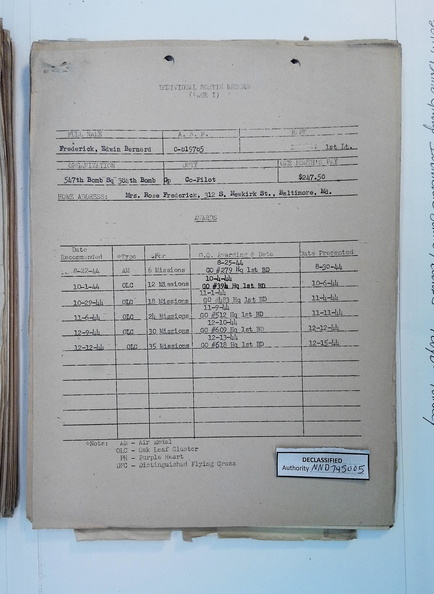 INDIVIDUAL SORTIE RECORD
(PAGE 1)
FULL NAME A. S. N. RANK
Frederick, Edwin Bernard 0-819705 1st Lt.
ORGANIZATION DUTY
547th Bomb Sq 384th Bomb Gp Co-Pilot $247.50
HOME ADDRESS: Mrs. Rose Frederick, 312 S. Newkirk St., Baltimore, Md.
AWARDS
Date Recommended *Type *For G.O. Awarding & Date Date Presented
8-25-44
8-22-44 AM 6 Missions GO #279 Hq 1st BD 8-30-44
10-4-44
10-1-44 OLC 12 Missions GO #394 Hq 1st BD 10-6-44
11-1-44
10-29-44 OLC 18 Missions GO #483 Hq 1st BD 11-4-44
11-9-44
11-6-44 OLC 24 Missions GO #512 Hq 1st BD 11-11-44
12-10-44
12-9-44 OLC 30 Missions GO #609 Hq 1st BD 12-12-44
12-13-44
12-12-44 OLC 35 Missions GO #618 Hq 1st BD 12-15-44
*Note: AM - Air Medal
OLC - Oak Leaf Cluster
PH - Purple Heart
DFC - Distinguished Flying Cross
DECLASSIFIED
Authority NND745005